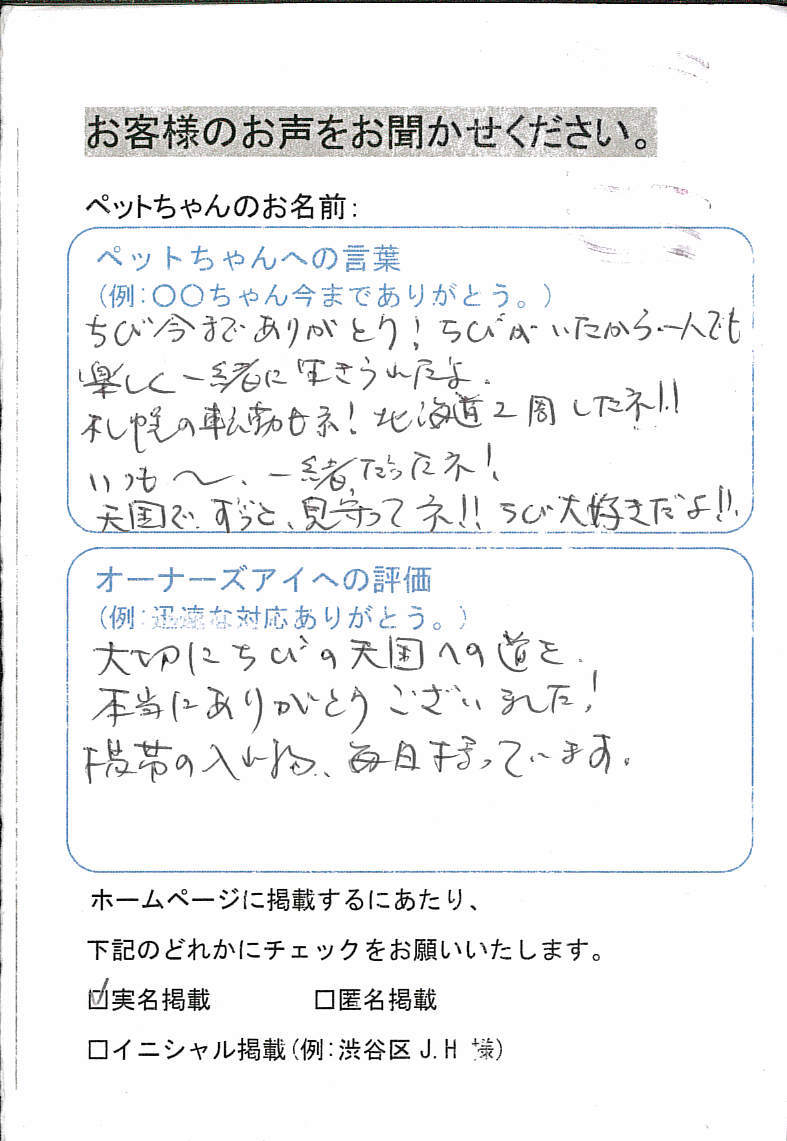 お客様のお声をお聞かせください。
ペットちゃんのお名前：
ペットちゃんへの言葉
（例：〇〇ちゃん今までありがとう。）
ちび今までありがとう！ちびがいたから一人でも
楽しく一緒に生きられたよ。
札幌の転勤もネ！北海道2周したネ!!
いつも〜、一緒だったネ！
天国で、ずっと、見守ってネ!!ちび大好きだよ!!
オーナーズアイへの評価
（例：迅速な対応ありがとう。）
大切にちびの天国への道を、
本当にありがとうございました！
携帯の入れ物、毎日持っています。
ホームページに掲載するにあたり、
下記のどれかにチェックをお願いいたします。
☑実名掲載 □匿名掲載
□イニシャル掲載（例：渋谷区 J.H 様）